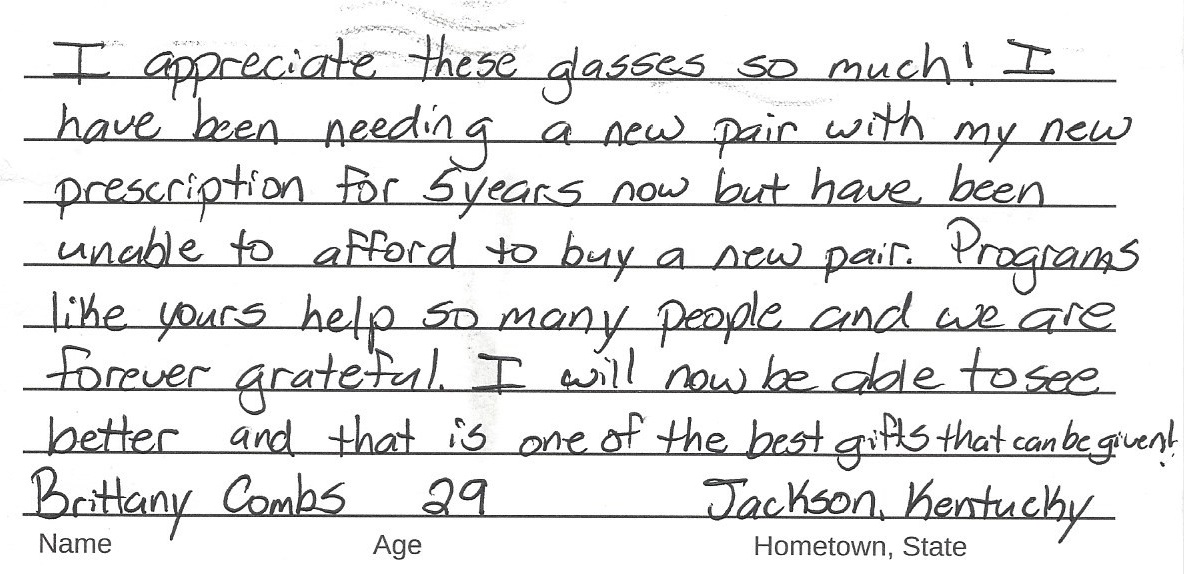 I appreciate these glasses so much! I
have been needing a new pair with my new
prescription for 5 years now but have been
unable to afford to buy a new pair. Programs
like yours help so many people and we are
forever grateful. I will now be able to see
better and that is one of the best gifts that can be given!
Brittany Combs 29 Jackson, Kentucky
Name Age Hometown, State